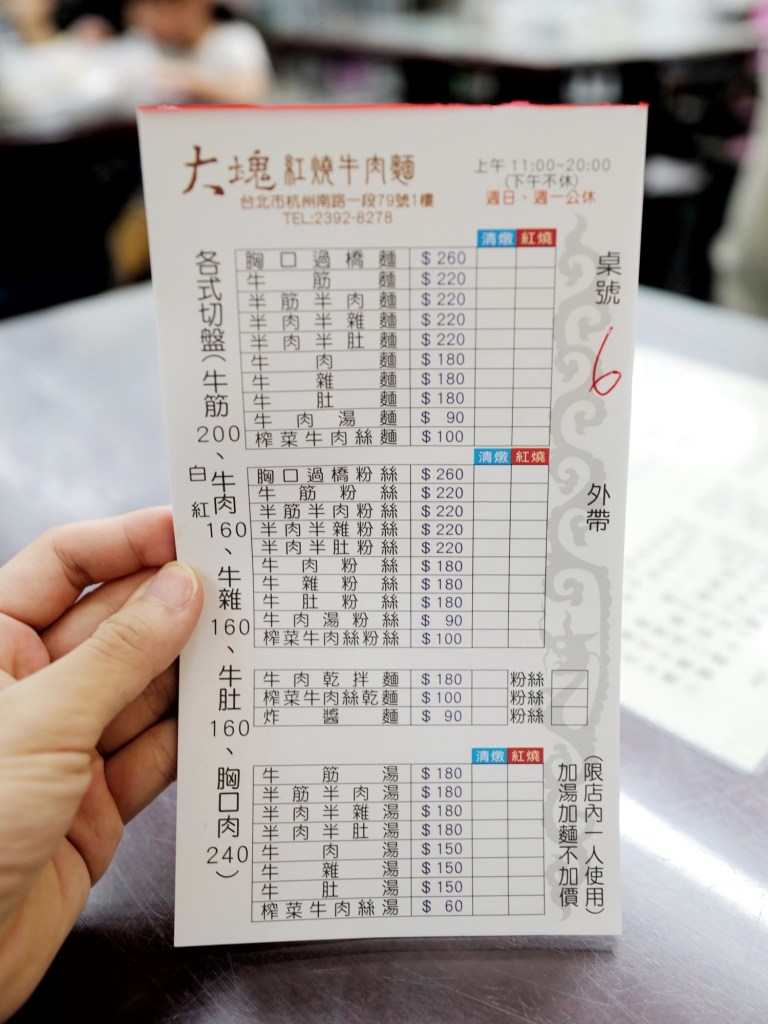 大塊紅燒牛肉麵
台北市杭州南路一段79號1樓
TEL:2392-8278
上午 11:00~20:00
(下午不休)
週日、週一公休
各式切盤(牛筋200、牛肉160、牛雜160、牛肚160、胸口肉240)
白 紅
清燉 紅燒
胸口過橋麵 $260
牛筋麵 $220
半筋半肉麵 $220
半肉半雜麵 $220
半肉半肚麵 $220
牛肉麵 $180
牛雜麵 $180
牛肚麵 $180
牛肉湯麵 $90
榨菜牛肉絲麵 $100
清燉 紅燒
胸口過橋粉絲 $260
牛筋粉絲 $220
半筋半肉粉絲 $220
半肉半雜粉絲 $220
半肉半肚粉絲 $220
牛肉粉絲 $180
牛雜粉絲 $180
牛肚粉絲 $180
牛肉湯粉絲 $90
榨菜牛肉絲粉絲 $100
牛肉乾拌麵 $180 粉絲
榨菜牛肉絲乾麵 $100 粉絲
炸醬麵 $90 粉絲
清燉 紅燒
牛筋湯 $180
半筋半肉湯 $180
半肉半雜湯 $180
半肉半肚湯 $180
牛肉湯 $150
牛雜湯 $150
牛肚湯 $150
榨菜牛肉絲湯 $60
桌號 6
外帶
(限店內一人使用)
加湯加麵不加價